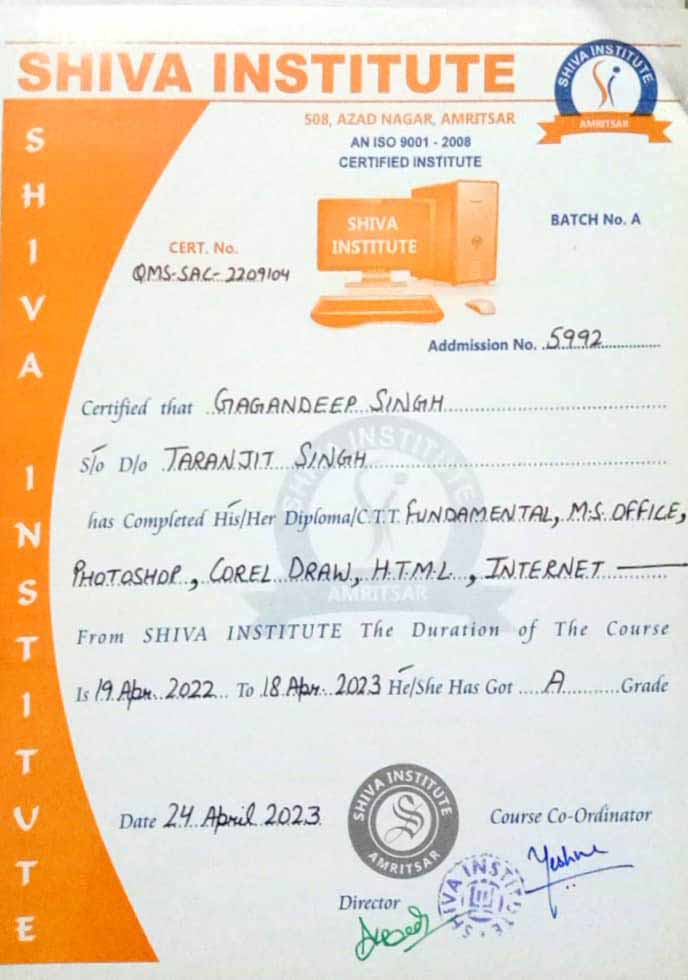 SHIVA INSTITUTE
SHIVA INSTITUTE
AMRITSAR
508, AZAD NAGAR, AMRITSAR
AN ISO 9001 - 2008
CERTIFIED INSTITUTE
SHIVA INSTITUTE
SHIVA
INSTITUTE
BATCH No. A
CERT. No.
QMS-SAC-2209104
Addmission No. 5992
Certified that GAGANDEEP SINGH
S/o D/o TARANJIT SINGH
has Completed His/Her Diploma/C.T.T. FUNDAMENTAL, M.S. OFFICE,
PHOTOSHOP, COREL DRAW, H.T.M.L, INTERNET
SHIVA INSTITUTE
AMRITSAR
From SHIVA INSTITUTE The Duration of The Course
Is 19 Apr. 2022 To 18 Apr. 2023 He/She Has Got A Grade
Date 24 April 2023
SHIVA INSTITUTE
S
AMRITSAR
Course Co-Ordinator
Director
SHIVA INSTITUTE